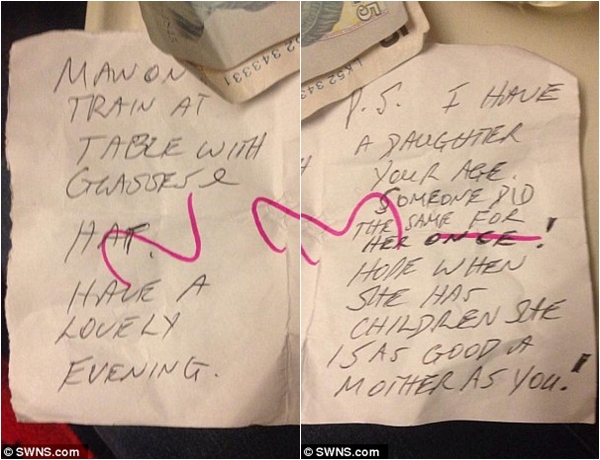 MAN ON
TRAIN AT
TABLE WITH
GLASSES &
HAT.
HAVE A
LOVELY
EVENING.
© SWNS.com
5
LK52 3433
P.S. I HAVE
A DAUGHTER
YOUR AGE.
SOMEONE DID
THE SAME FOR
HER ONCE!
HOPE WHEN
SHE HAS
CHILDREN SHE
IS AS GOOD A
MOTHER AS YOU!
© SWNS.com